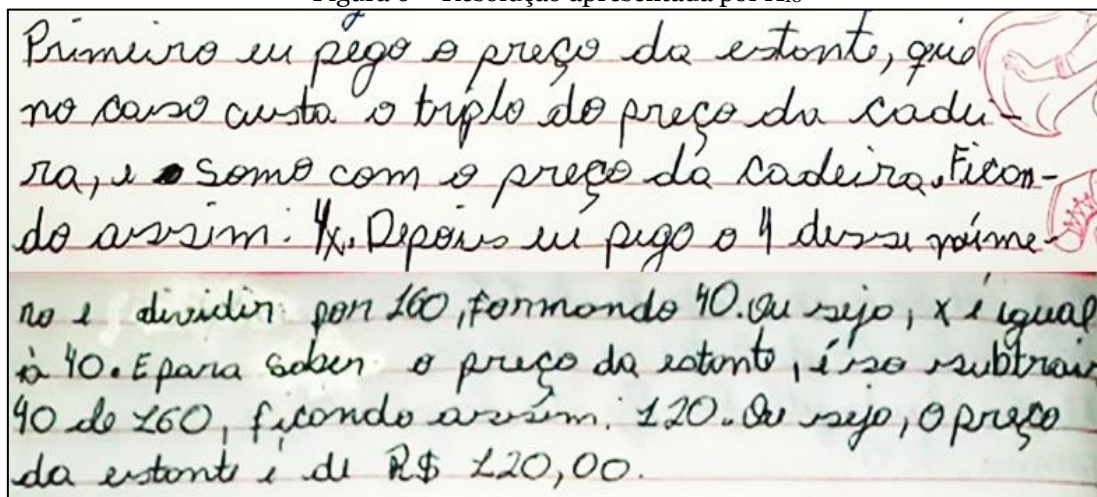 Primeiro eu pego o preço da estante, que
no caso custa o triplo do preço da cadei-
ra, e somo com o preço da cadeira. Fican-
do assim: 4x. Depois eu pego o 4 desse núme-
ro e dividir por 160, formando 40. Ou seja, x é igual
à 40. E para saber o preço da estante, é so subtrair
40 de 160, ficando assim: 120. Ou seja, o preço
da estante é de R$ 120,00.